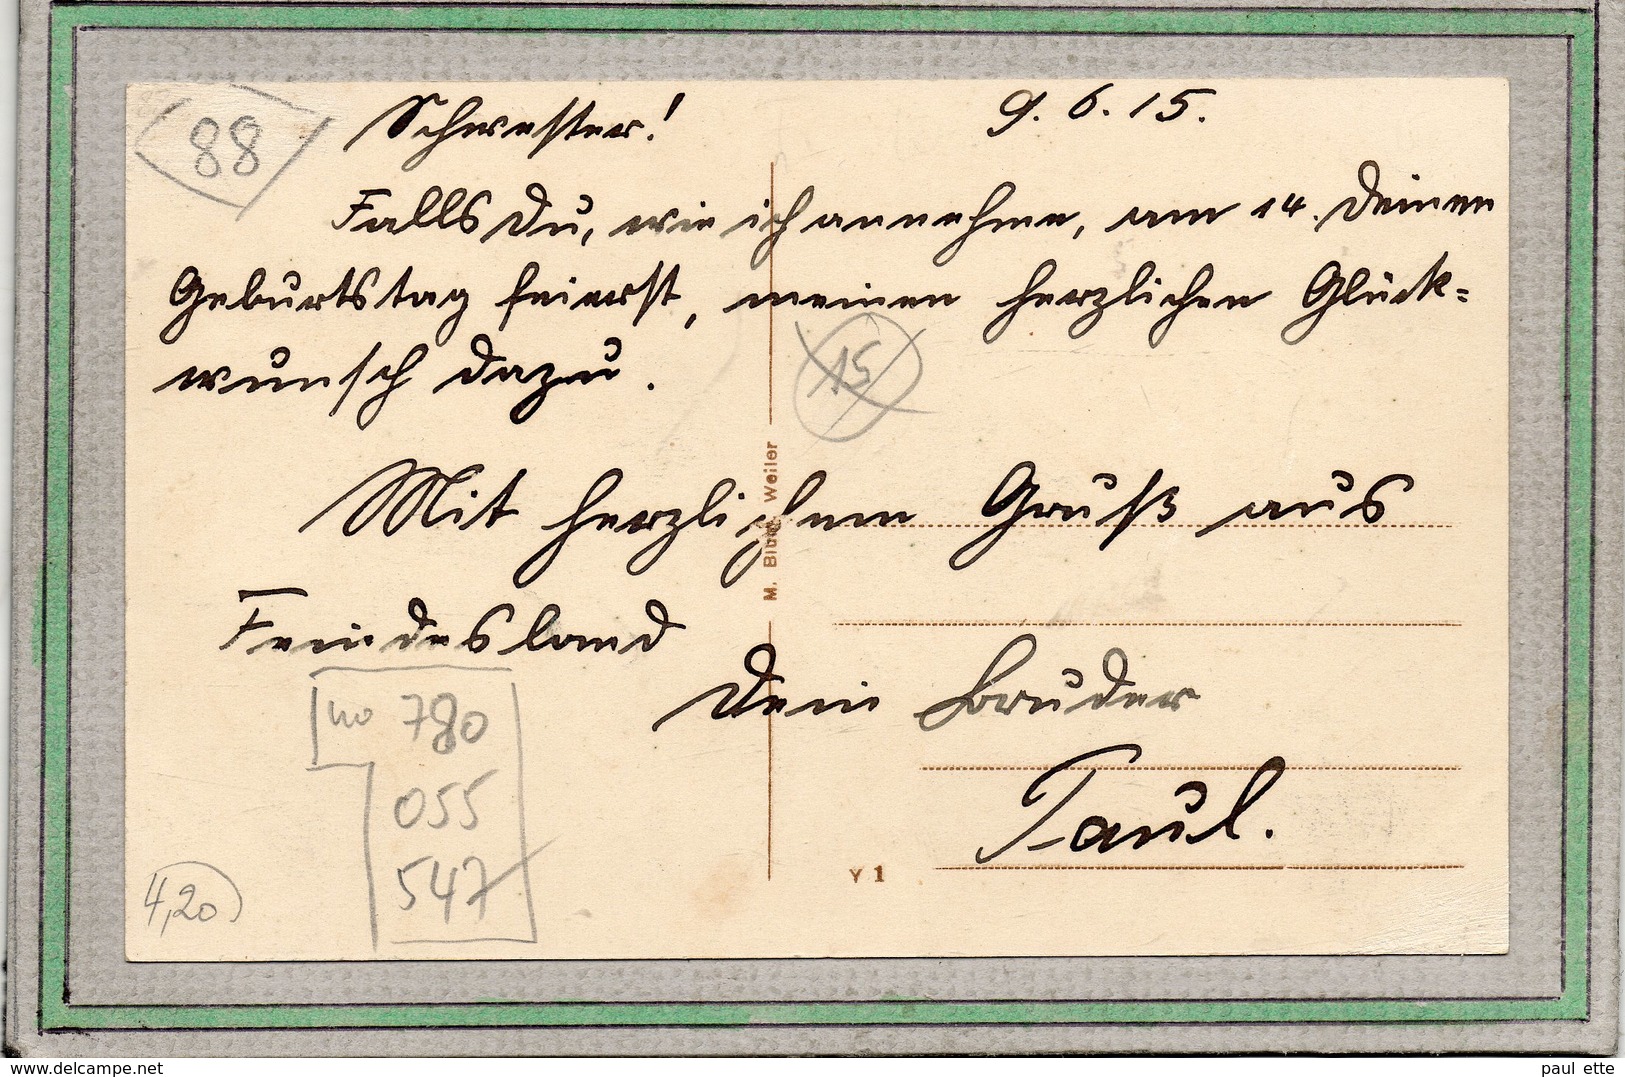 88
Schwester!
9.6.15.
Falls Du, wie ich annehme, am 14. Deinen
Geburtstag feierst, meinen herzlichen Glück-
wunsch dazu.
15
Mit herzlichem Gruß aus
Feindesland
Dein Bruder
Paul.
M. Blum, Weiler
no 780
055
547
4,20
Y 1
delcampe.net
paul ette